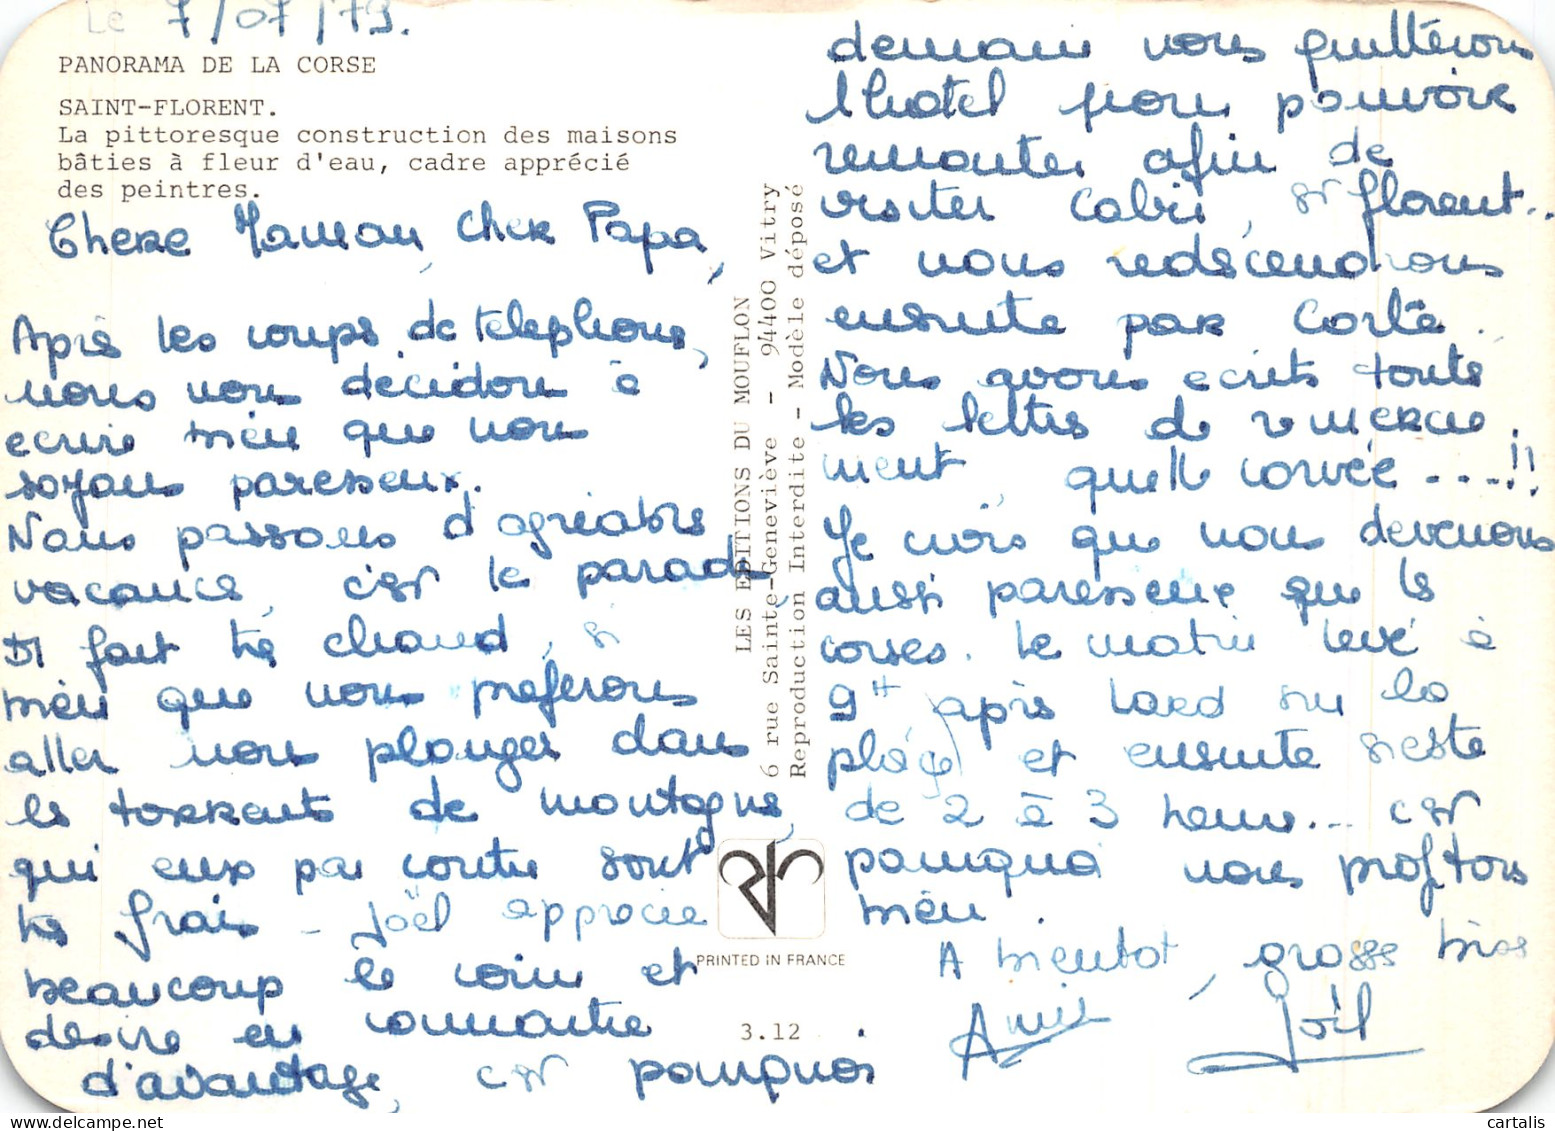 Le 7/07/79.
PANORAMA DE LA CORSE
SAINT-FLORENT.
La pittoresque construction des maisons
bâties à fleur d'eau, cadre apprécié
des peintres.
Chere Maman, cher Papa,
Après les coups de telephone,
nous nous décidons à
ecrire même que nous
soyons paresseux.
Nous passons d'agréables
vacances, c'est le paradis
Il fait très chaud, si
même que nous préferons
aller nous plonger dans
les torrents de montagne,
qui eux par contre sont
très frais - Joël apprécie
beaucoup le coin et
desire en connaitre
d'avantage, c'est pourquoi
demain nous quitterons
l'hotel pour pouvoir
remonter afin de
visiter Calvi, St Florent..
et nous redescendrons
ensuite par Corte.
Nous avons ecrits toutes
les lettres de remercie
ment, quelle corvée ----!!
Je crois que nous devenons
aussi paresseux que les
corses. Le matin levé à
9H après lard sur la
plage et ensuite sieste
de 2 à 3 heures... c'est
pourquoi nous profitons
même.
A bientot, grosses bises
Joël
LES EDITIONS DU MOUFLON
6 rue Sainte-Geneviève - 94400 Vitry
Reproduction Interdite - Modèle déposé
PRINTED IN FRANCE
3.12
cartalis